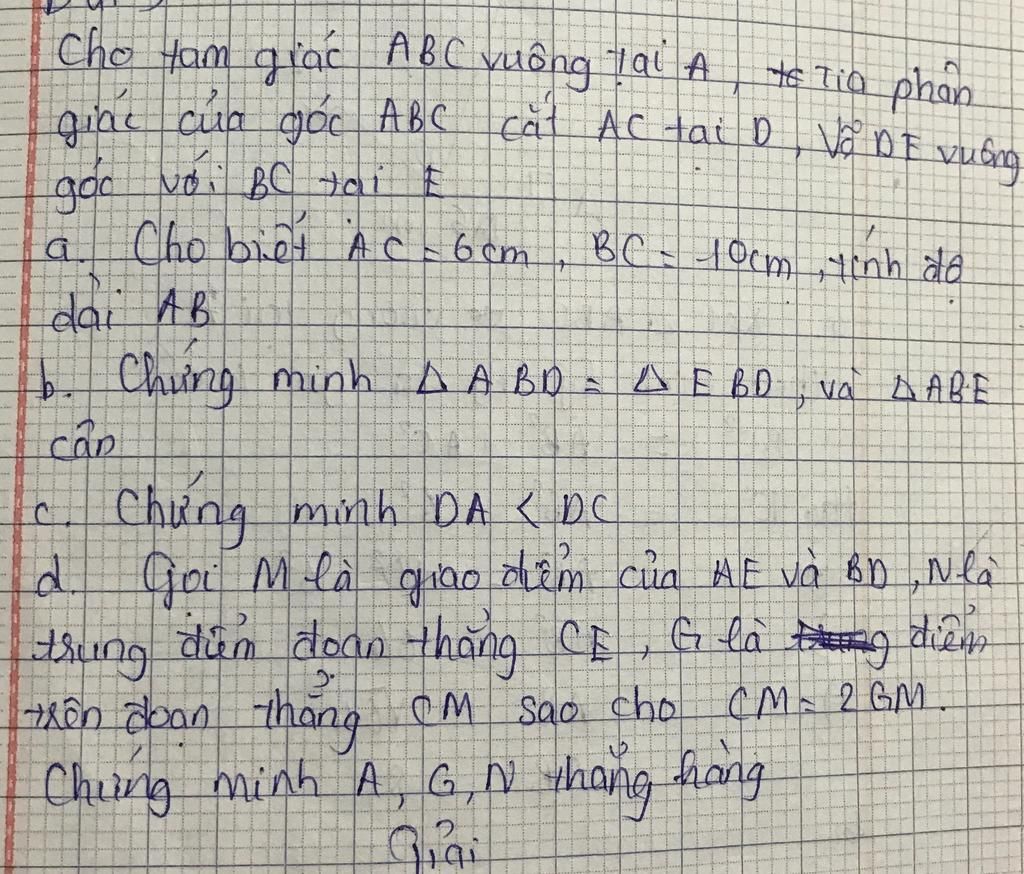 Cho tam giác ABC vuông tại A, Tia phân
giác của góc ABC cắt AC tại D, Vẽ DE vuông
góc với BC tại E
a. Cho biết AC = 6cm, BC = 10cm, tính độ
dài AB
b. Chứng minh Δ ABD = Δ EBD, và Δ ABE
cân
c. Chứng minh DA < DC
d. Gọi M là giao điểm của AE và BD, N là
trung điểm đoạn thẳng CE, G là điểm
trên đoạn thẳng CM sao cho CM = 2GM.
Chứng minh A, G, N thẳng hàng
Giải